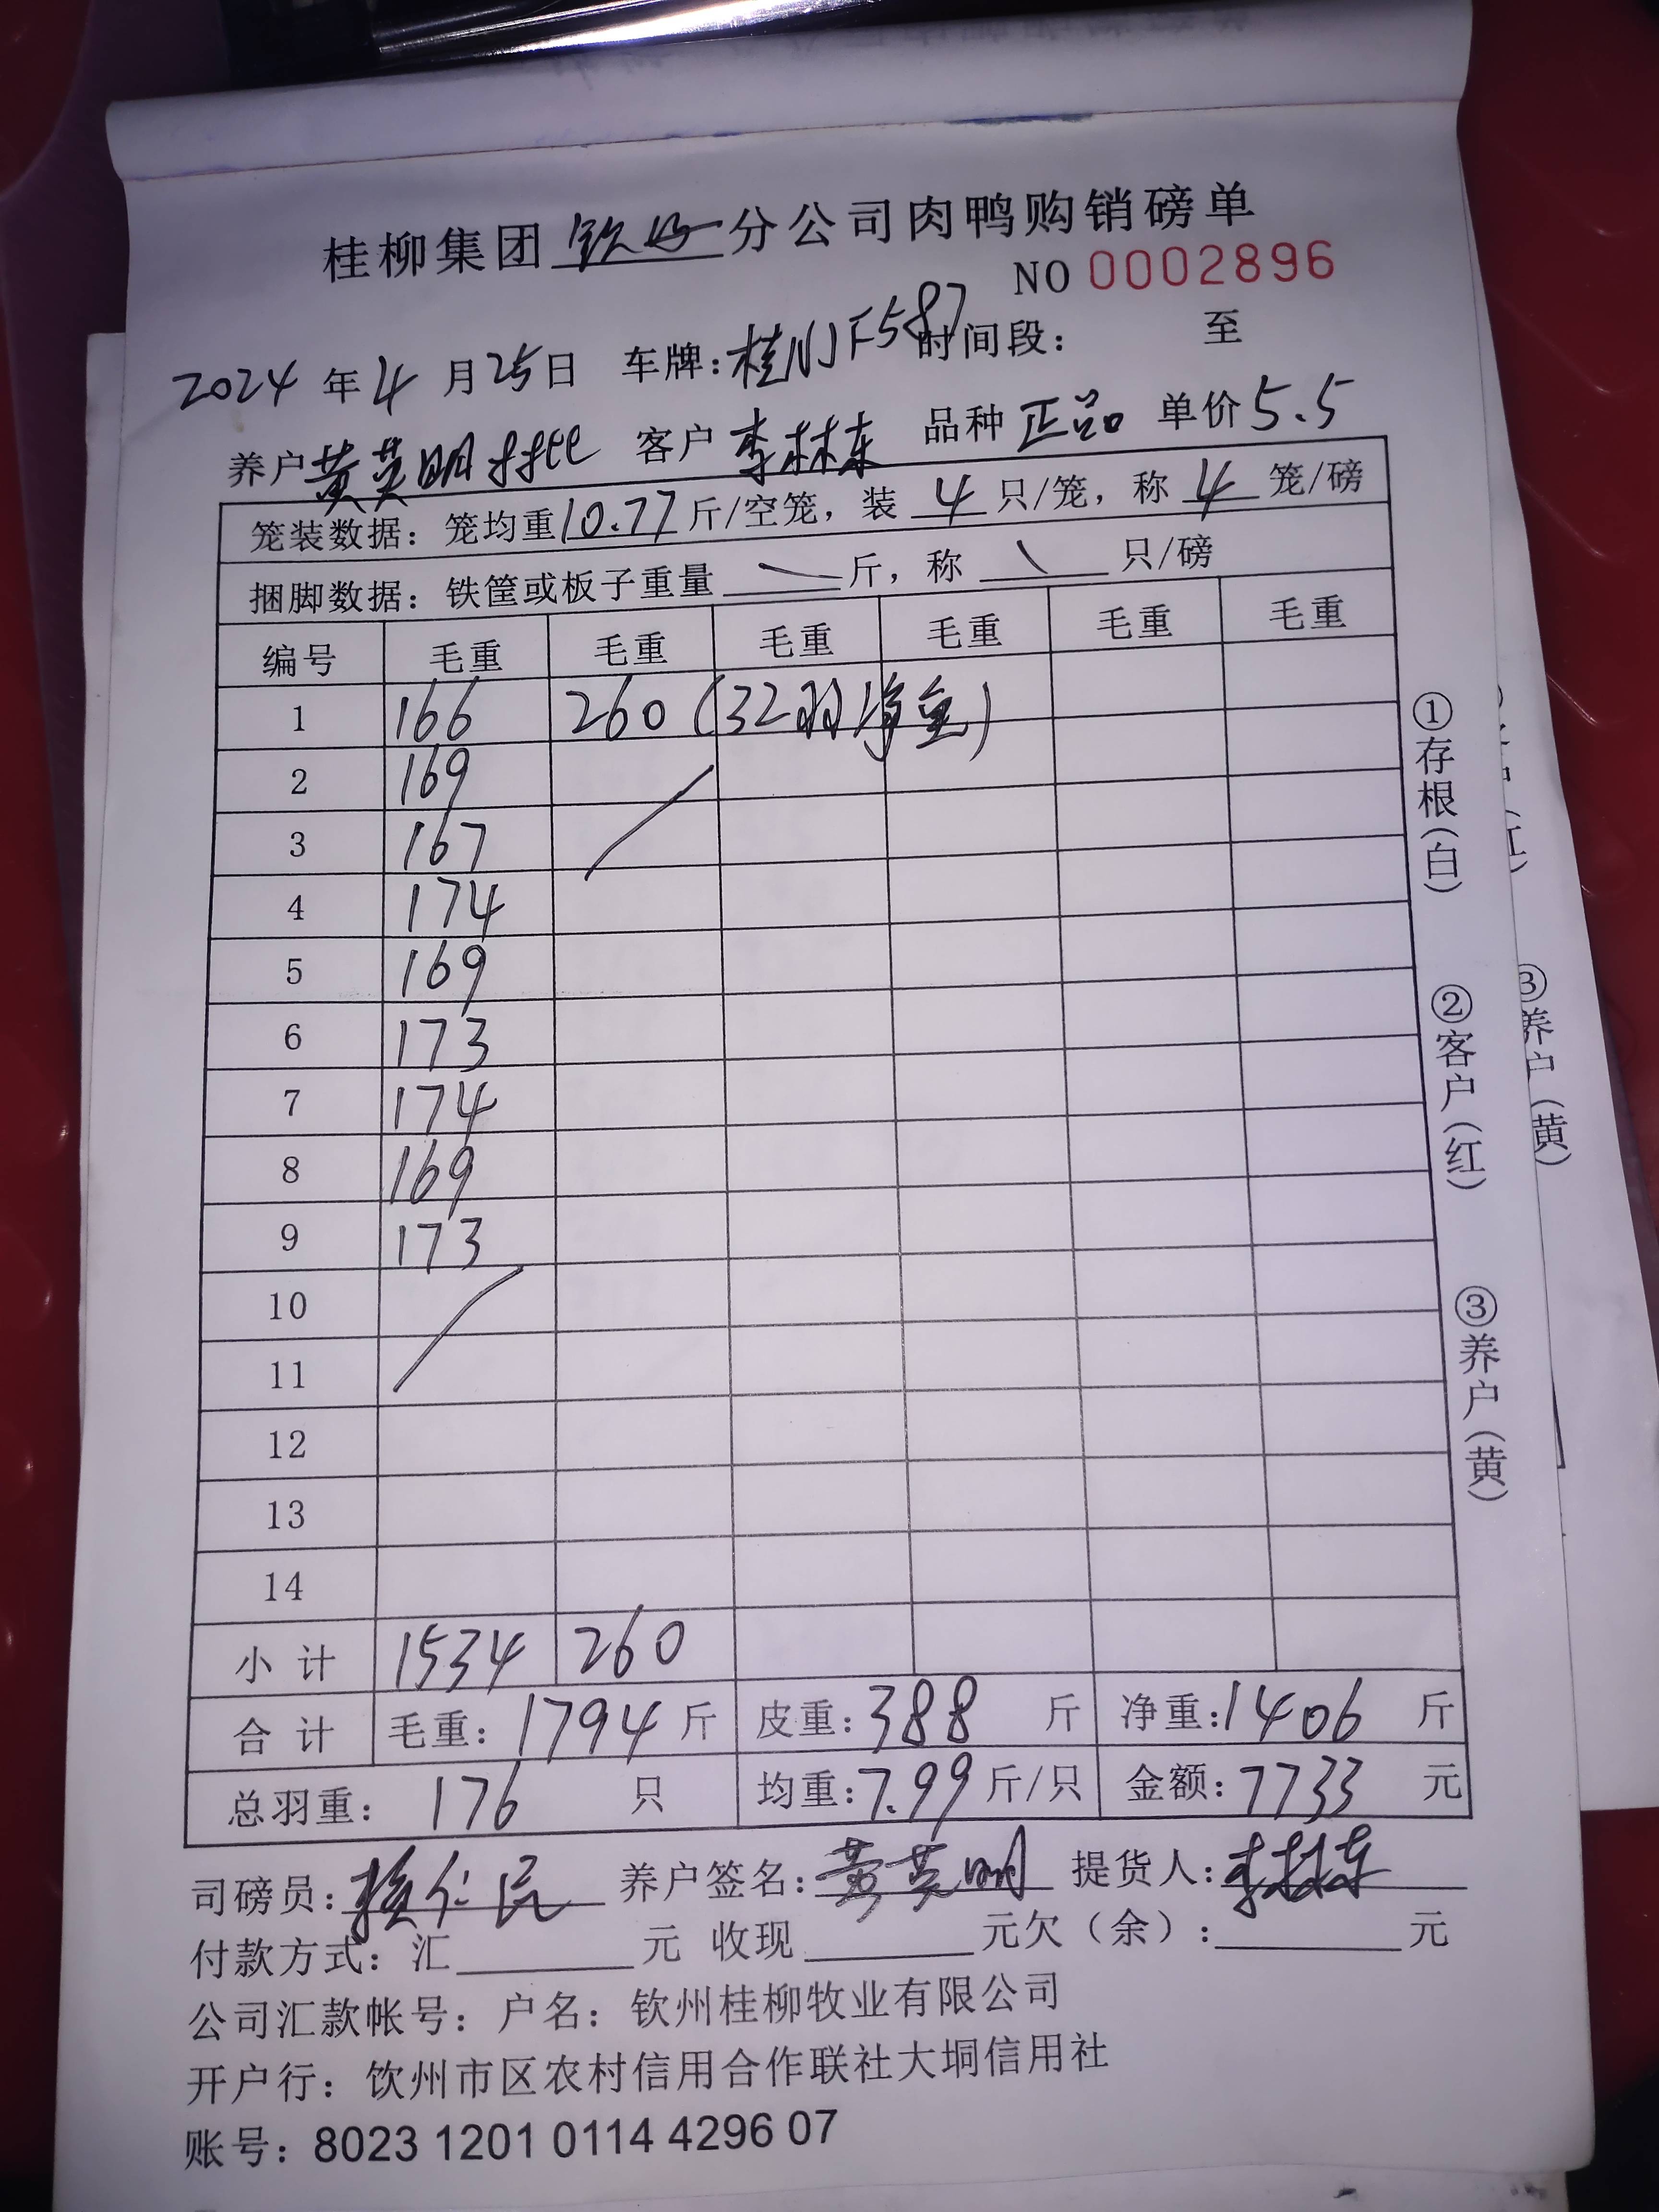 桂柳集团钦州分公司肉鸭购销磅单
NO 0002896
2024年4月25日 车牌:桂NJF587 时间段: 至
养户黄英明 客户李林东 品种正品 单价5.5
笼装数据:笼均重10.77斤/空笼,装4只/笼,称4笼/磅
捆脚数据:铁筐或板子重量\斤,称\只/磅
编号 毛重 毛重 毛重 毛重 毛重 毛重
1 166 260(32羽净重)
2 169
3 167
4 174
5 169
6 173
7 174
8 169
9 173
10
11
12
13
14
小计 1534 260
合计 毛重:1794斤 皮重:388斤 净重:1406斤
总羽重:176只 均重:7.99斤/只 金额:7733元
司磅员: 养户签名:黄英明 提货人:李林东
付款方式:汇______元 收现______元欠(余):______元
公司汇款帐号:户名:钦州桂柳牧业有限公司
开户行:钦州市区农村信用合作联社大垌信用社
账号:8023 1201 0114 4296 07
①存根(白)
②客户(红)
③养户(黄)
③养户(黄)